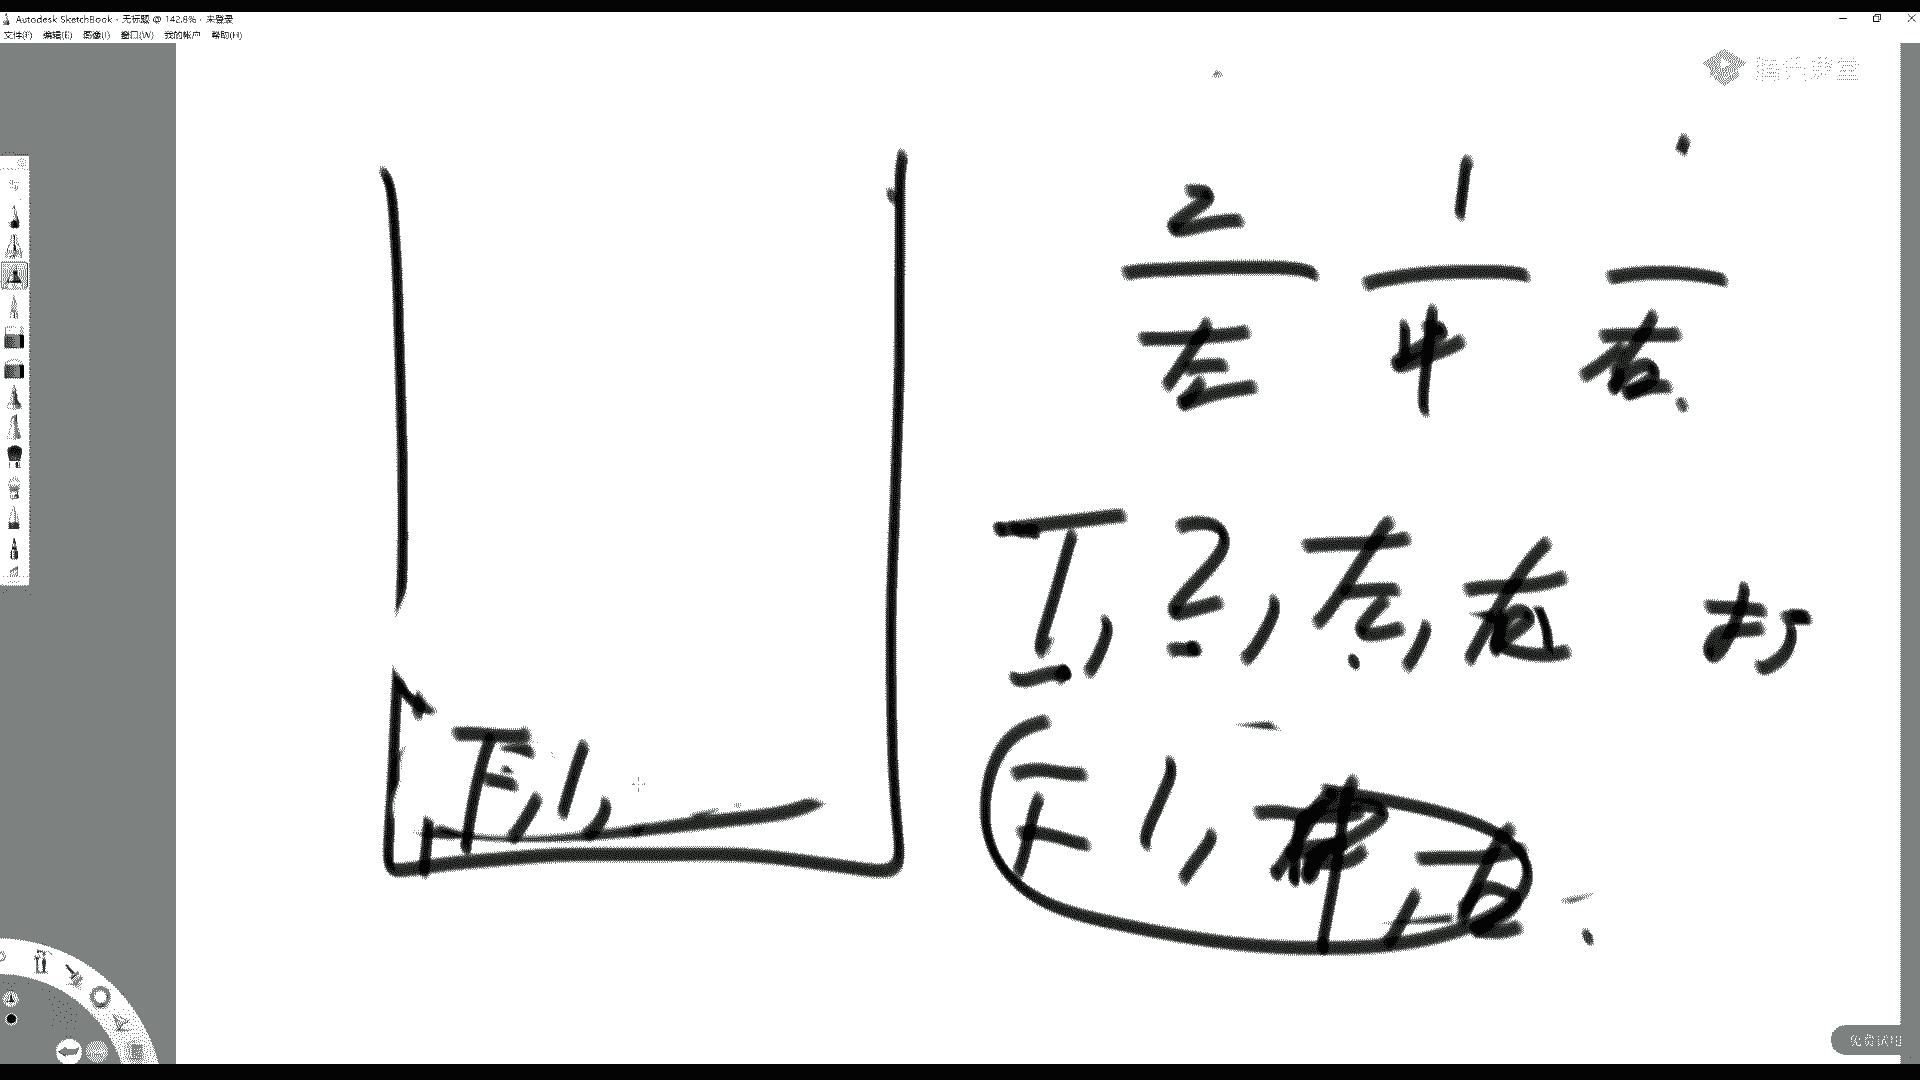 Autodesk SketchBook - 无标题 @ 142.8% - 未登录
文件(F) 编辑(E) 图像(I) 窗口(W) 我的帐户 帮助(H)
腾讯课堂
2 1
左 中 右
T, 2, 左, 右
1, 中, 右
1,
免费试用